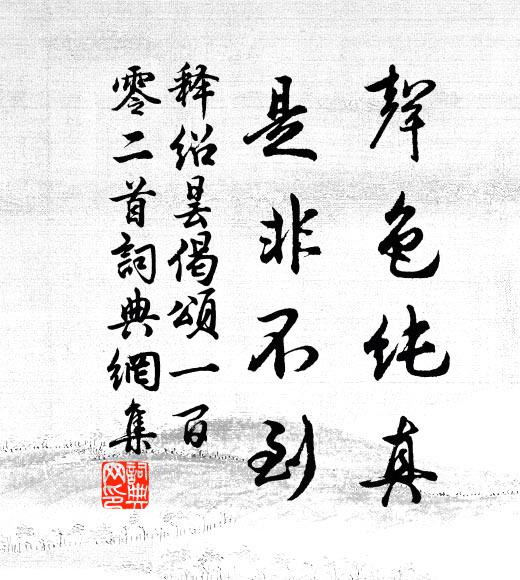 聲色純真
是非不到
释绍昙偈頌一百
零二首詞典網集
詞典网印